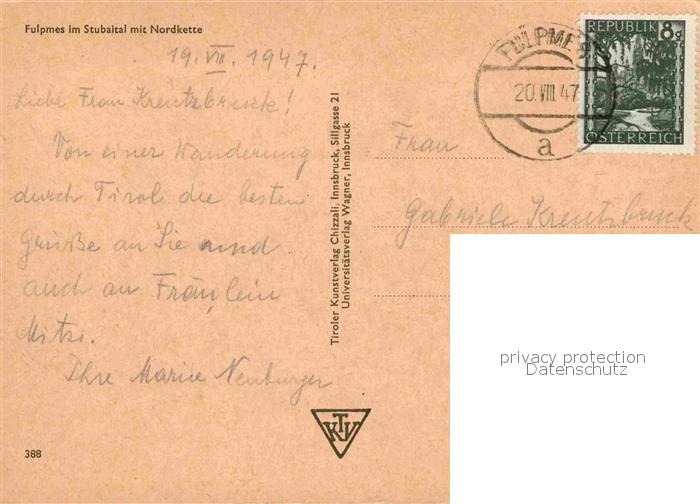 Fulpmes im Stubaital mit Nordkette
19. VIII. 1947.
Liebe Frau Kreutzbruck!
Von einer Wanderung
durch Tirol die besten
Grüße an Sie und
auch an Fräulein
Mitzi.
Ihre Marie Neuburger
388
Tiroler Kunstverlag Chizzali, Innsbruck, Sillgasse 21
Universitätsverlag Wagner, Innsbruck
KTV
FULPMES
20. VIII. 47
a
REPUBLIK 8g
ÖSTERREICH
Frau
Gabriele Kreutzbruck
privacy protection
Datenschutz